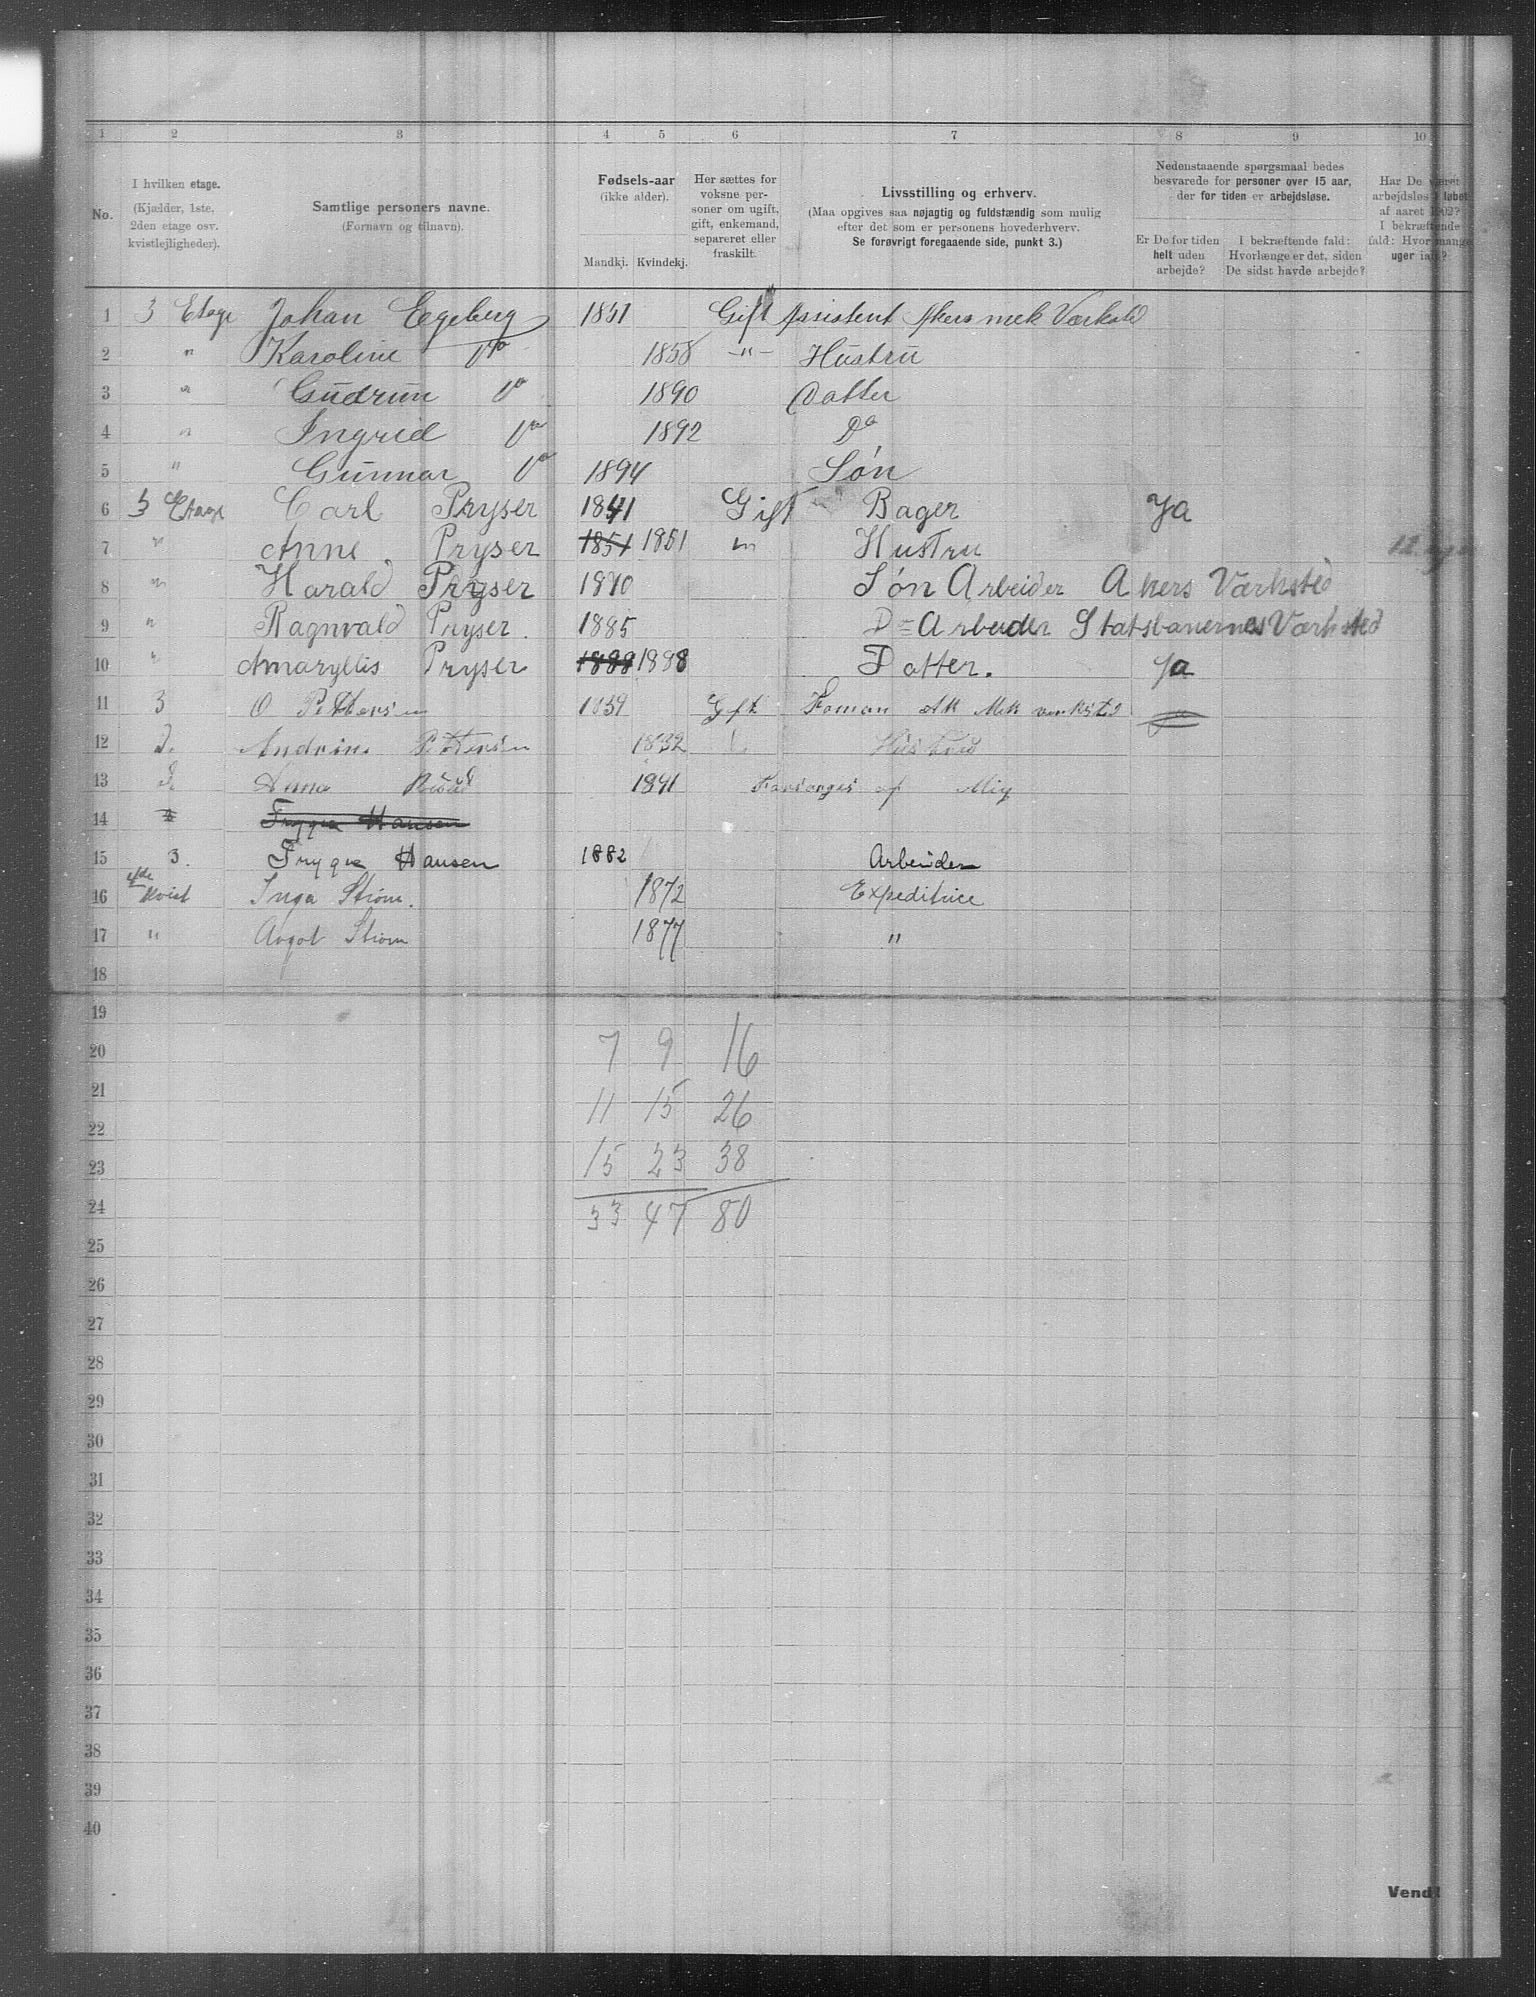 1 2 3 4 5 6 7 8 9 10
No.
I hvilken etage. (Kjælder, 1ste, 2den etage osv. kvistlejligheder).
Samtlige personers navne. (Fornavn og tilnavn).
Fødsels-aar (ikke alder).
Mandkj. Kvindekj.
Her sættes for voksne personer om ugift, gift, enkemand, separeret eller fraskilt.
Livsstilling og erhverv.
(Maa opgives saa nøjagtig og fuldstændig som mulig efter det som er personens hovederhverv.
Se forøvrigt foregaaende side, punkt 3.)
Nedenstaaende spørgsmaal bedes besvarede for personer over 15 aar, der for tiden er arbejdsløse.
Er De for tiden helt uden arbejde?
I bekræftende fald: Hvorlænge er det, siden De sidst havde arbejde?
Har De været arbejdsløs i løbet af aaret 1902? I bekræftende fald: Hvor mange uger ialt?
1 3 Etage Johan Egeberg 1851 Gift Assistent Akers mek Værksted
2 " Karoline Do 1858 -"- Hustru
3 " Gudrun Do 1890 Datter
4 " Ingrid Do 1892 Do
5 " Gunnar Do 1894 Søn
6 3 Etage Carl Pryser 1841 Gift Bager Ja
7 " Anne Pryser 1851 1851 " Hustru 12
8 " Harald Pryser 1870 Søn Arbeider Akers Værksted
9 " Ragnvald Pryser. 1885 Do Arbeider Statsbanernes Værksted
10 " Amaryllis Pryser 1888 1888 Datter. Ja
11 3 O Pettersen 1839 Gift Forman Ak Mek verksted
12 Andrine Pettersen 1832 Hustrud
13 Anna 1841 Forsørges af Mig
14 Trygve Hansen
15 3. Trygve Hansen 1882 Arbeider
16 4de Kvist Inga Strøm. 1872 Expeditrice
17 " Aagot Strøm 1877 "
18
19
20 7 9 16
21 11 15 26
22
23 15 23 38
24 33 47 80
25
26
27
28
29
30
31
32
33
34
35
36
37
38
39
40
Vend!